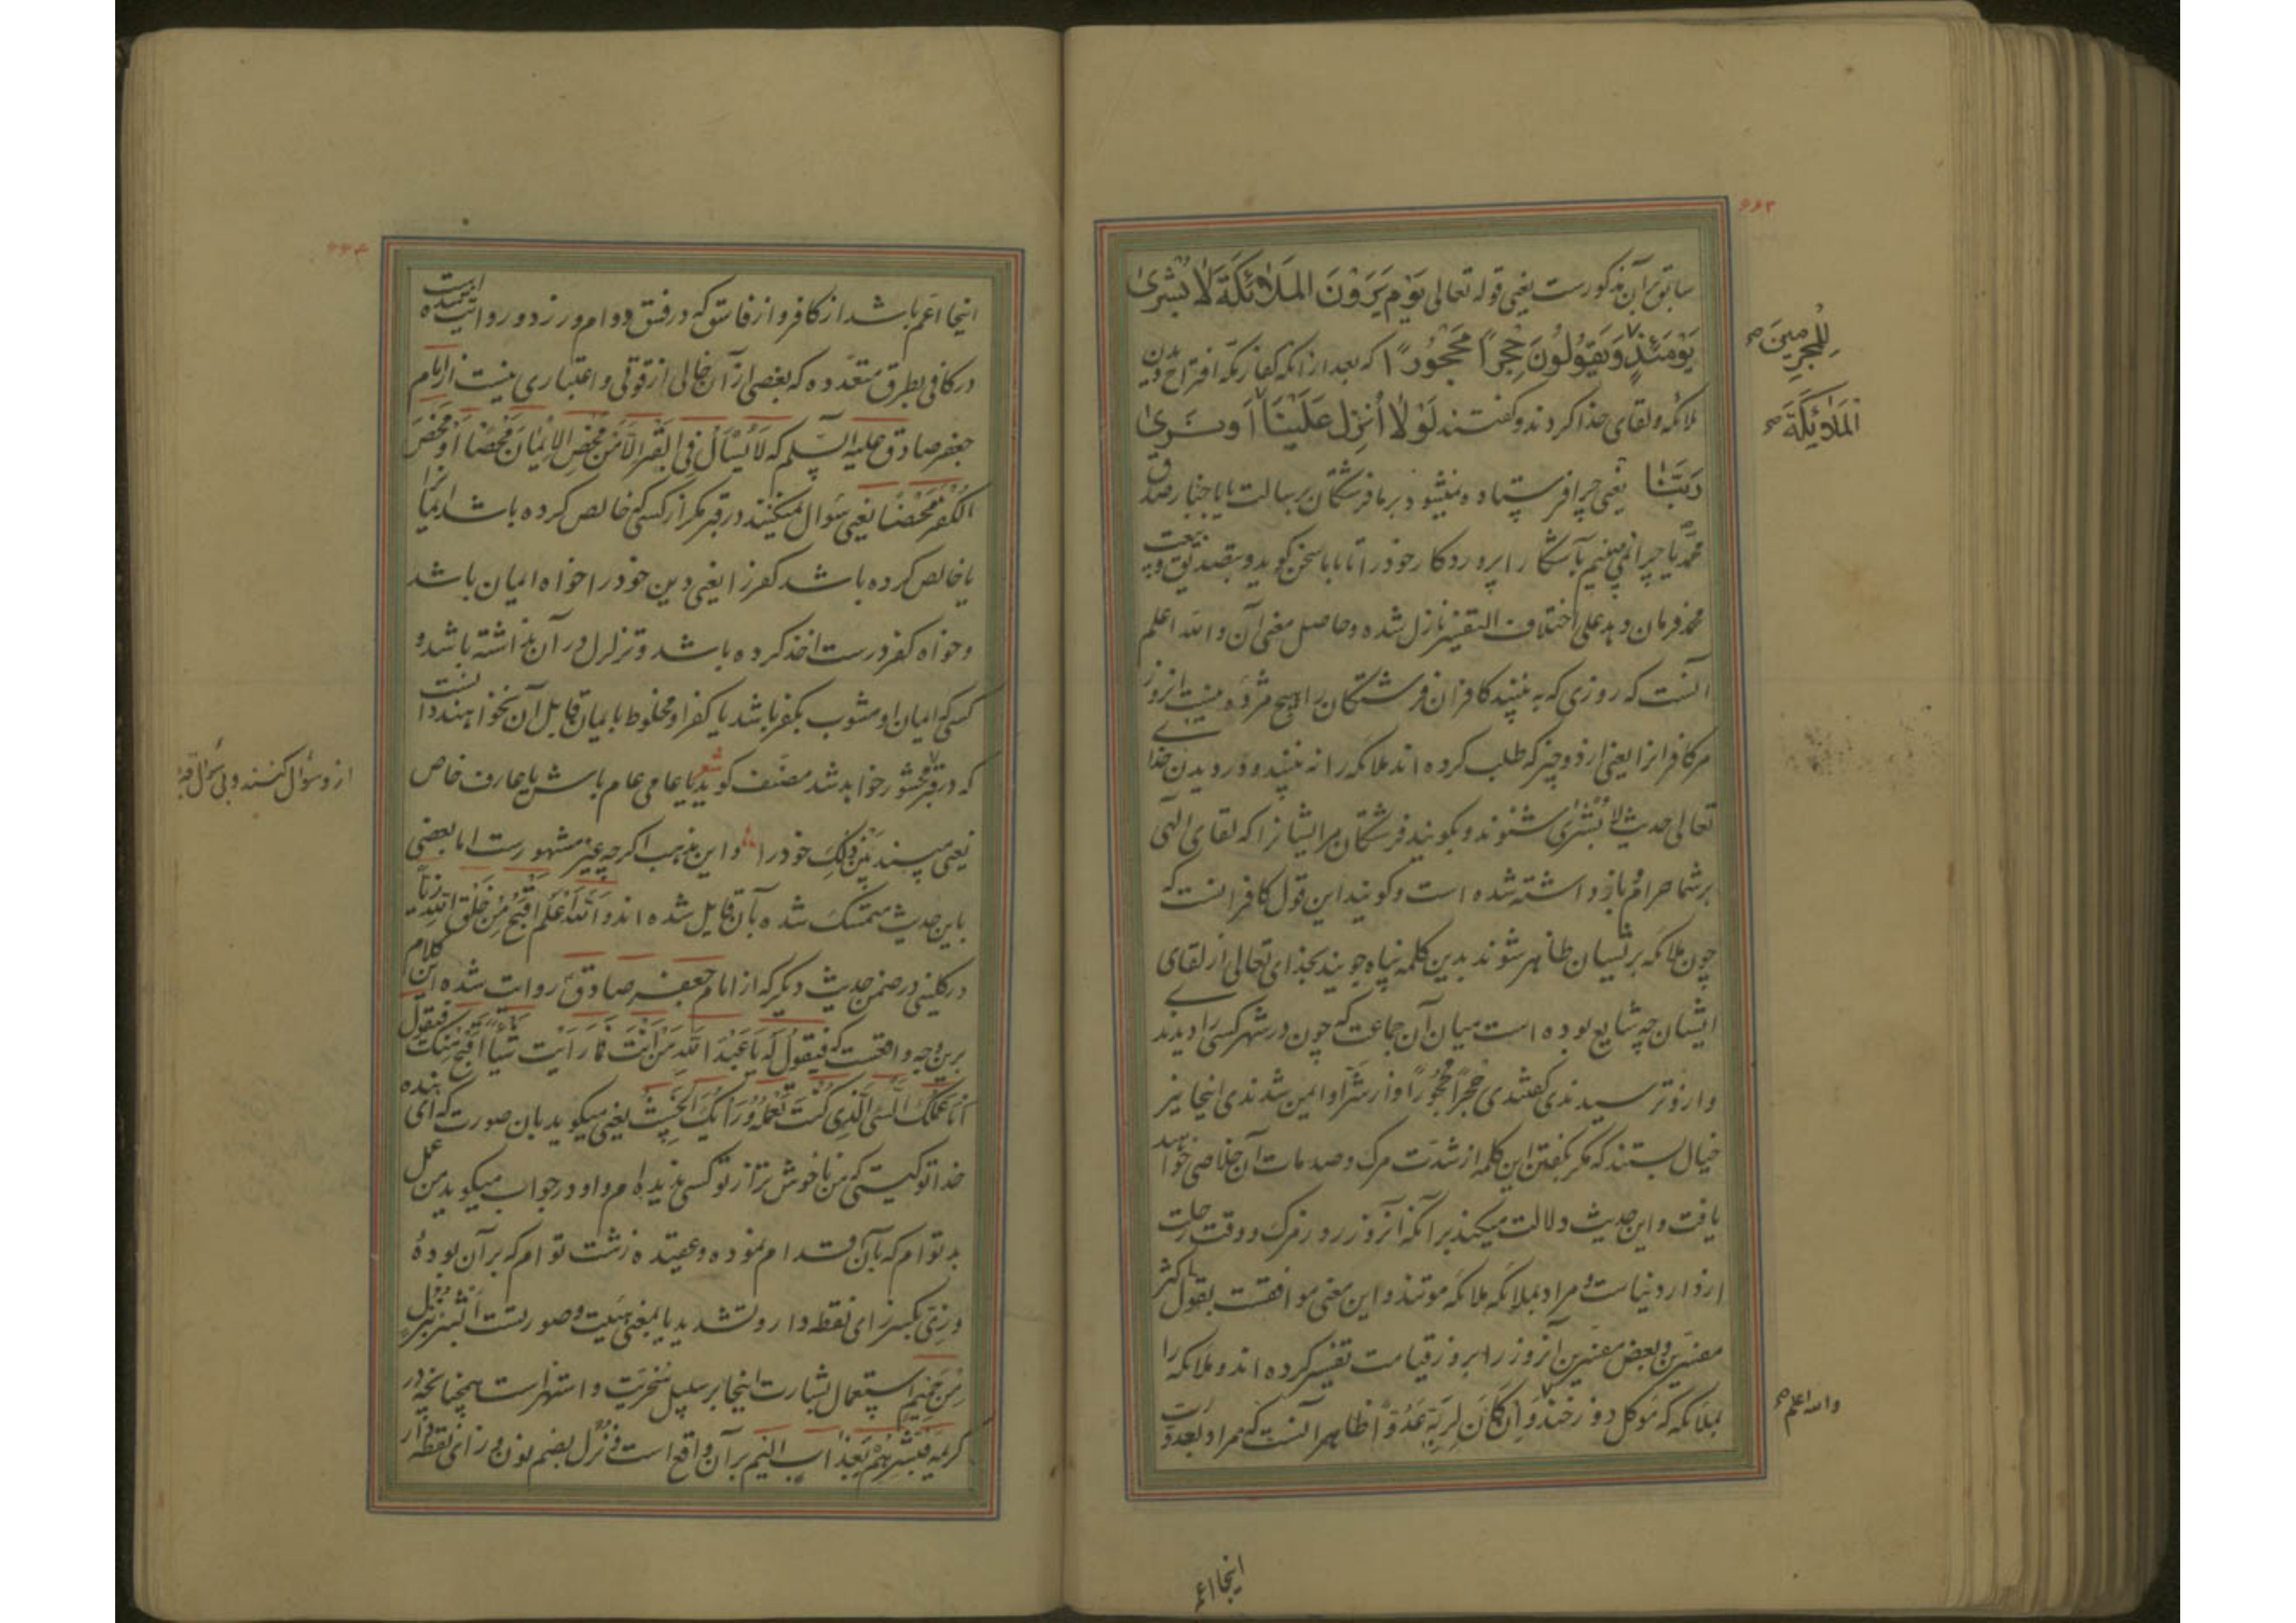 ۶۶۳
سابق برآن مذکورست یعنی قوله تعالی یَوْمَ یَرَوْنَ المَلٰائِکَةَ لَا بُشْریٰ
یَوْمَئِذٍ وَیَقُولُونَ حِجْراً مَحْجُوراً که بعد از آنکه کفار مکه اقتراح دیدن
للمجرمین صح
ملائکه و لقای خدا کردند و گفتند لَوْلٰا اُنْزِلَ عَلَیْنَا أو نَریٰ
المَلٰائِکَة صح
رَبَّنٰا یعنی چرا فرستاده نمیشود بر ما فرشتگان برسالت یا باخبار صدق
محمد یا چرا نمی بینیم بآشکارا پروردکار خود را تا با ما سخن کوید و بتصدیق و تبعیت
محمد فرمان دهد علی اختلاف التفسیر نازل شده و حاصل معنی آن والله اعلم
آنست که روزی که به بینند کافران فرشتگان را هیچ مژده نیست انروز
مر کافرانرا یعنی از دو چیز که طلب کرده اند ملائکه را به بینند و در دیدن خدای
تعالی حدیث لا بُشْریٰ شنوند و بکویند فرشتگان مر ایشانرا که لقای الهی
بر شما حرام و باز داشته شده است و کویند این قول کافرانست که
چون ملائکه بر ایشان ظاهر شوند بدین کلمه پناه جویند بخدای تعالی از لقای
ایشان چه شایع بوده است میان آن جماعت که چون در شهر کسی را دیدندی
و ازو ترسیدندی گفتندی حِجْراً مَحْجُوراً و از شر او ایمن شدندی اینجا نیز
خیال بستند که مکر بکفتن این کلمه از شدت مرک و صدمات آن خلاصی خواهند
یافت و این حدیث دلالت میکند برآنکه آنروز روز مرک و وقت رحلت
از دار دنیاست و مراد بملائکه ملائکه موتند و این معنی موافقست بقول اکثر
مفسرین و بعض مفسرین آنروز را بروز قیامت تفسیر کرده اند و ملائکه را
بملائکه که موکل دوزخند وَاِنْ کَانَ لِرَبِّهِ عَدُوّاً ظاهر آنست که مراد بعدوّ ربّ
والله اعلم صح
اینجا اعم
۶۶۴
اینجا اعم باشد از کافر و از فاسق که در فسق دوام ورزد و روایتست
در کافی بطرق متعدده که بعضی از آن خالی از قوتی و اعتباری نیست از امام
جعفر صادق علیه السلم که لَا یُسْأَلُ فی القَبْرِ اِلّا مَنْ مَحَضَ الاِیْمٰانَ مَحْضاً اَوْ مَحَضَ
الْکُفْرَ مَحْضاً یعنی سؤال نمیکنند در قبر مکر از کسی که خالص کرده باشد ایمانرا
یا خالص کرده باشد کفر را یعنی دین خود را خواه ایمان باشد
و خواه کفر درست اخذ کرده باشد و تزلزل در آن نداشته باشد و
کسی که ایمان او مشوب بکفر باشد یا کفر او مخلوط بایمان قابل آن نخواهند دانست
که در قبر محشور خواهد شد مصنف کوید شعر یا عامی عام باش یا عارف خاص
از و سؤال کنند و بی سؤال
یعنی مپسند بین ذلک خود را و این مذهب اکرچه غیر مشهورست اما بعضی
باین حدیث متمسک شده بآن قایل شده اند والله أعلم أَقْبَحُ مِنْ خَلْقِ اللّٰهِ زِیّاً
در کلینی در ضمن حدیث دیکر که از امام جعفر صادق روایت شده این کلام
برین وجه واقعست که فَیَقُولُ لَهُ یَا عَبْدَ اللّٰهِ مَنْ أَنْتَ فَمَا رَأَیْتُ شَیْئاً أَقْبَحَ مِنْکَ فَیَقُولُ
أَنَا عَمَلُکَ السَّیِّئُ الَّذِی کُنْتَ تَعْمَلُهُ وَرَأْیُکَ الخَبِیثُ یعنی میکوید بان صورت که ای بنده
خدا تو کیستی که من ناخوش تر از تو کسی ندیده ام و او در جواب میکوید من عمل
بد توام که بآن اقدام نموده و عقیده زشت توام که برآن بودهٔ
وزِیّ بکسر زای نقطه دار و تشدید یا بمعنی هیئت و صورتست أَبْشِرْ بِنُزُلٍ
مِنْ حَمِیمٍ استعمال بشارت اینجا بر سبیل سخریت و استهزاست همچنانچه در
کریمه فَبَشِّرْهُمْ بِعَذَابٍ أَلِیمٍ برآن واقع است و نُزُل بضم نون و زای نقطه دار